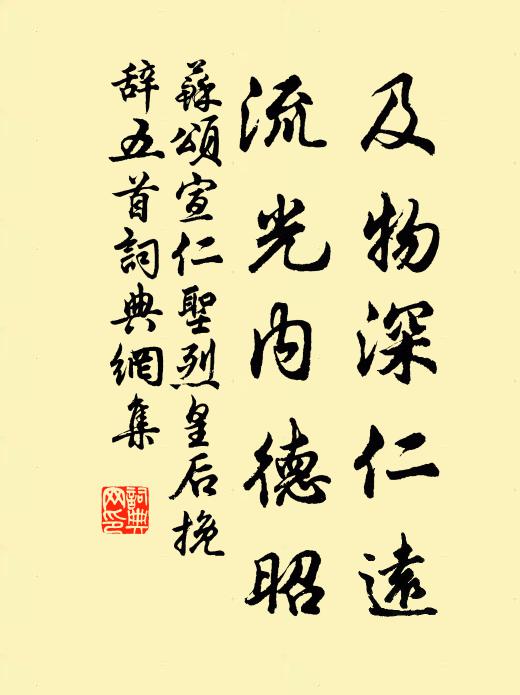 及物深仁遠
流光内德昭
蘇頌宣仁聖烈皇后挽
辞五首詞典網集
詞典網印